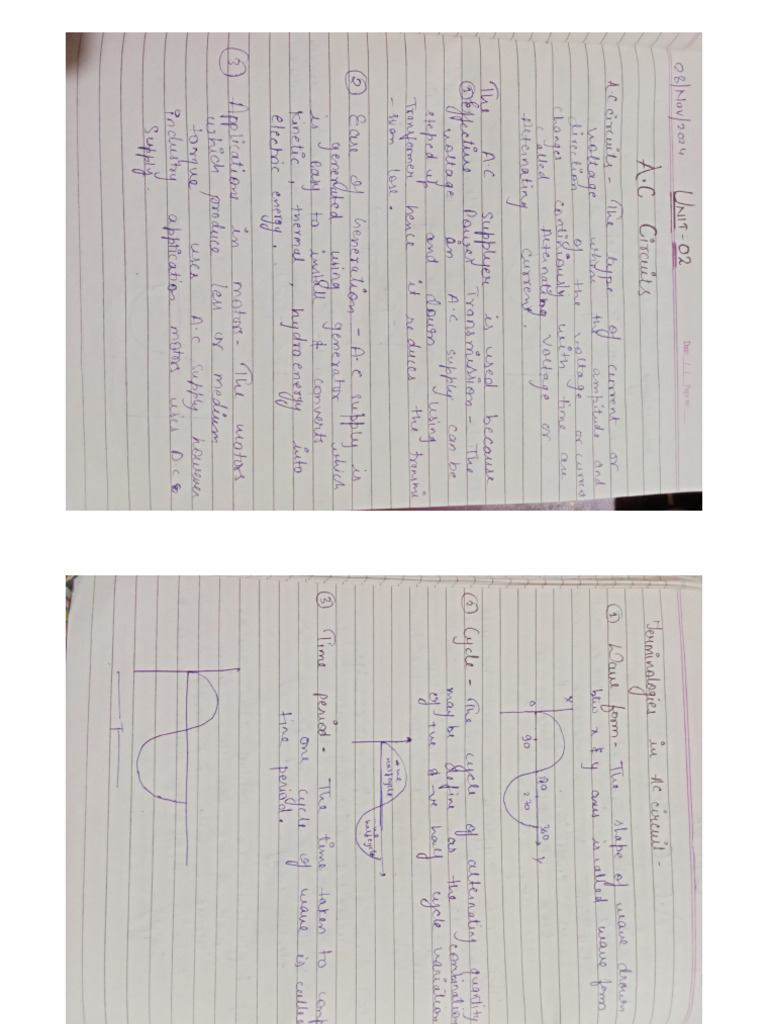 08/Nov/2024 UNIT-02
A.C Circuits
AC circuits - The type of current or
voltage which the amplitude and
direction of the voltage or current
changes continiously with time are
called Alternating voltage or
Alternating current.
The A.C supplier is used because
① Effective Power Transmission - The
voltage in A.C supply can be
steped up and down using
Transformer hence it reduces the transmi
-ssion loss.
② Ease of Generation - A.C supply is
generated using generator which
is easy to install & converts
kinetic, thermal, hydroenergy into
electric energy.
③ Applications in motor - The motors
which produce less or medium
torque uses A.C supply however
industry application motors uses DC
supply.
Terminologies in AC circuit -
① Wave form - The shape of wave drawn
btw x & y axis is called wave form
X
0 90 180 270 360 Y
② Cycle - The cycle of alternating quantity
may be define as the combination
of +ve & -ve half cycle variation
+ve
halfcycle
-ve
halfcycle
③ Time period - The time taken to comp
one cycle of wave is called
time period.
T